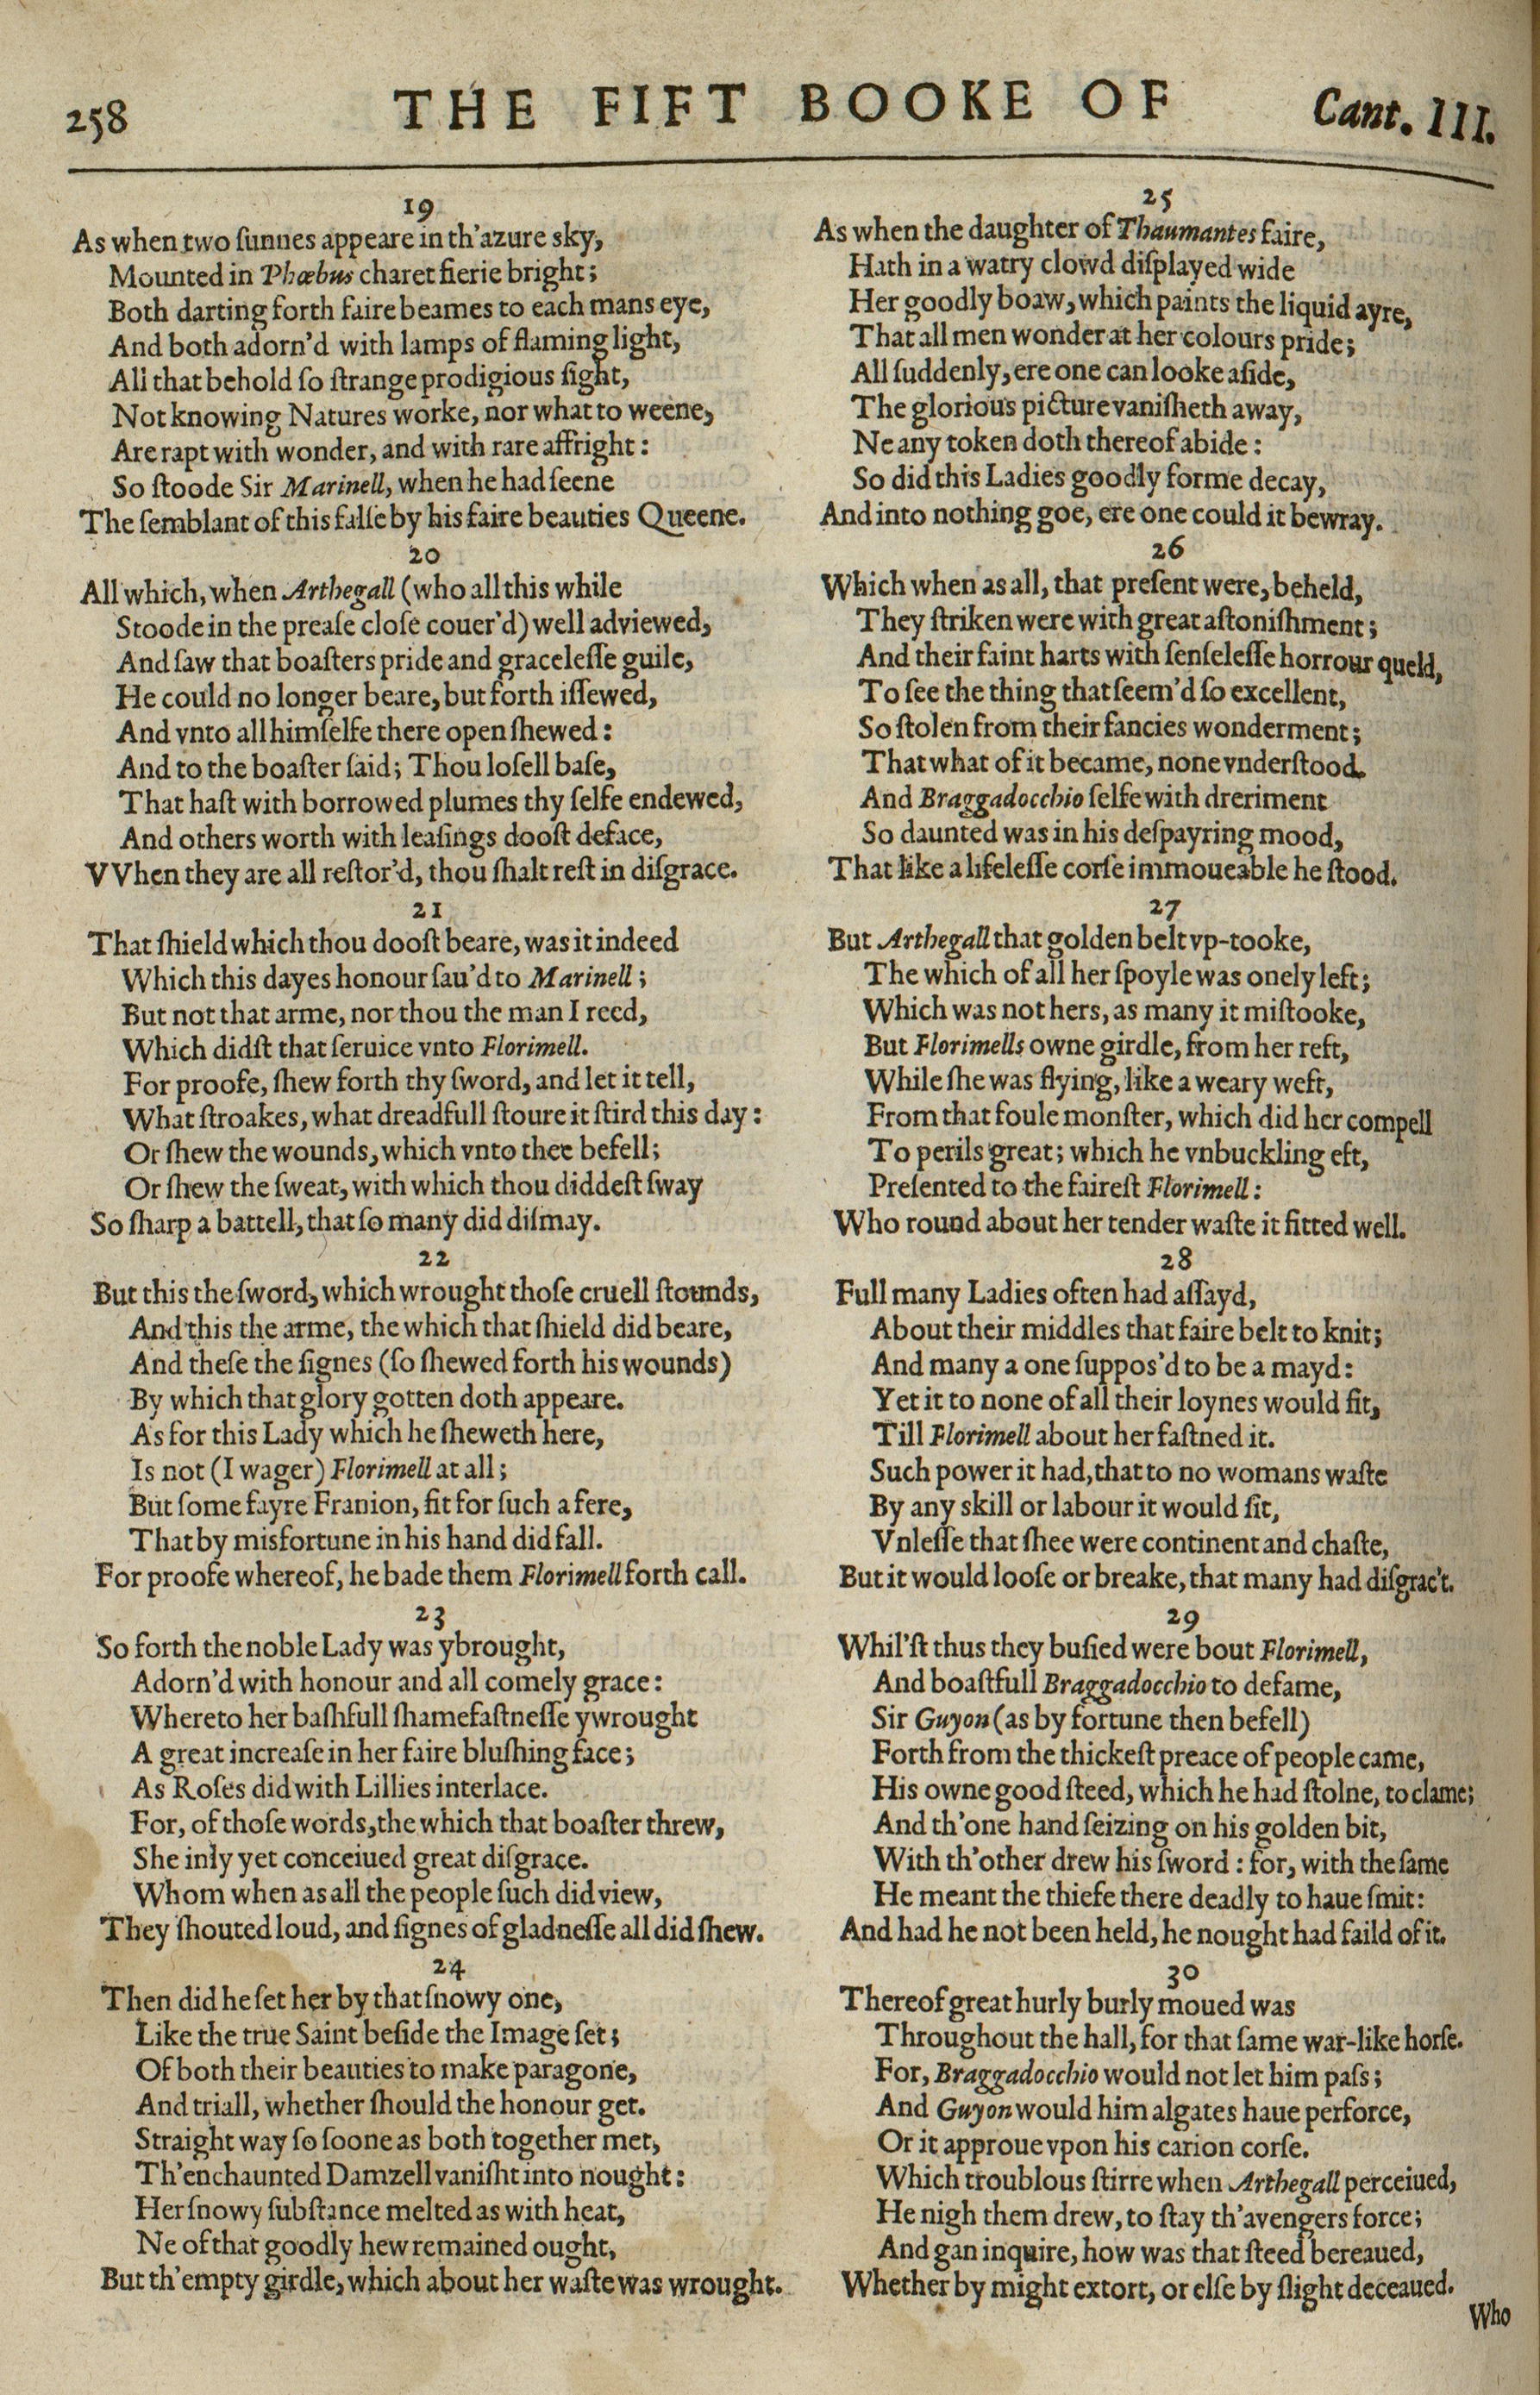 258
THE FIFT BOOKE OF
Cant. III.
19
As when two ſunnes appeare in th'azure sky,
Mounted in Phœbus charet fierie bright;
Both darting forth faire beames to each mans eye,
And both adorn'd with lamps of flaming light,
All that behold ſo ſtrange prodigious ſight,
Not knowing Natures worke, nor what to weene,
Are rapt with wonder, and with rare affright:
So ſtoode Sir Marinell, when he had ſeene
The ſemblant of this falſe by his faire beauties Queene.
20
All which, when Arthegall (who all this while
Stoode in the preaſe cloſe couer'd) well adviewed,
And ſaw that boaſters pride and graceleſſe guile,
He could no longer beare, but forth iſſewed,
And vnto all himſelfe there open ſhewed:
And to the boaſter ſaid; Thou loſell baſe,
That haſt with borrowed plumes thy ſelfe endewed,
And others worth with leaſings dooſt deface,
VVhen they are all reſtor'd, thou ſhalt reſt in diſgrace.
21
That ſhield which thou dooſt beare, was it indeed
Which this dayes honour ſau'd to Marinell;
But not that arme, nor thou the man I reed,
Which didſt that ſeruice vnto Florimell.
For proofe, ſhew forth thy ſword, and let it tell,
What ſtroakes, what dreadfull ſtoure it ſtird this day:
Or ſhew the wounds, which vnto thee befell;
Or ſhew the ſweat, with which thou diddeſt ſway
So ſharp a battell, that ſo many did diſmay.
22
But this the ſword, which wrought thoſe cruell ſtounds,
And this the arme, the which that ſhield did beare,
And theſe the ſignes (ſo ſhewed forth his wounds)
By which that glory gotten doth appeare.
As for this Lady which he ſheweth here,
Is not (I wager) Florimell at all;
But ſome fayre Franion, fit for ſuch a fere,
That by misfortune in his hand did fall.
For proofe whereof, he bade them Florimell forth call.
23
So forth the noble Lady was ybrought,
Adorn'd with honour and all comely grace:
Whereto her baſhfull ſhamefaſtneſſe ywrought
A great increaſe in her faire bluſhing face;
As Roſes did with Lillies interlace.
For, of thoſe words, the which that boaſter threw,
She inly yet conceiued great diſgrace.
Whom when as all the people ſuch did view,
They ſhouted loud, and ſignes of gladneſſe all did ſhew.
24
Then did he ſet her by that ſnowy one,
Like the true Saint beſide the Image ſet;
Of both their beauties to make paragone,
And triall, whether ſhould the honour get.
Straight way ſo ſoone as both together met,
Th'enchaunted Damzell vaniſht into nought:
Her ſnowy ſubſtance melted as with heat,
Ne of that goodly hew remained ought,
But th'empty girdle, which about her waſte was wrought.
25
As when the daughter of Thaumantes faire,
Hath in a watry clowd diſplayed wide
Her goodly boaw, which paints the liquid ayre,
That all men wonder at her colours pride;
All ſuddenly, ere one can looke aſide,
The glorious picture vaniſheth away,
Ne any token doth thereof abide:
So did this Ladies goodly forme decay,
And into nothing goe, ere one could it bewray.
26
Which when as all, that preſent were, beheld,
They ſtriken were with great aſtoniſhment;
And their faint harts with ſenſeleſſe horrour queld,
To ſee the thing that ſeem'd ſo excellent,
So ſtolen from their fancies wonderment;
That what of it became, none vnderſtood.
And Braggadocchio ſelfe with dreriment
So daunted was in his deſpayring mood,
That like a lifeleſſe corſe immoueable he ſtood.
27
But Arthegall that golden belt vp-tooke,
The which of all her ſpoyle was onely left;
Which was not hers, as many it miſtooke,
But Florimells owne girdle, from her reft,
While ſhe was flying, like a weary weft,
From that foule monſter, which did her compell
To perils great; which he vnbuckling eft,
Preſented to the faireſt Florimell:
Who round about her tender waſte it fitted well.
28
Full many Ladies often had aſſayd,
About their middles that faire belt to knit;
And many a one ſuppos'd to be a mayd:
Yet it to none of all their loynes would fit,
Till Florimell about her faſtned it.
Such power it had, that to no womans waſte
By any skill or labour it would fit,
Vnleſſe that ſhee were continent and chaſte,
But it would looſe or breake, that many had diſgrac't.
29
Whil'ſt thus they buſied were bout Florimell,
And boaſtfull Braggadocchio to defame,
Sir Guyon (as by fortune then befell)
Forth from the thickeſt preace of people came,
His owne good ſteed, which he had ſtolne, to clame;
And th'one hand ſeizing on his golden bit,
With th'other drew his ſword: for, with the ſame
He meant the thiefe there deadly to haue ſmit:
And had he not been held, he nought had faild of it.
30
Thereof great hurly burly moued was
Throughout the hall, for that ſame war-like horſe.
For, Braggadocchio would not let him paſs;
And Guyon would him algates haue perforce,
Or it approue vpon his carion corſe.
Which troublous ſtirre when Arthegall perceiued,
He nigh them drew, to ſtay th'avengers force;
And gan inquire, how was that ſteed bereaued,
Whether by might extort, or elſe by ſlight deceaued.
Who